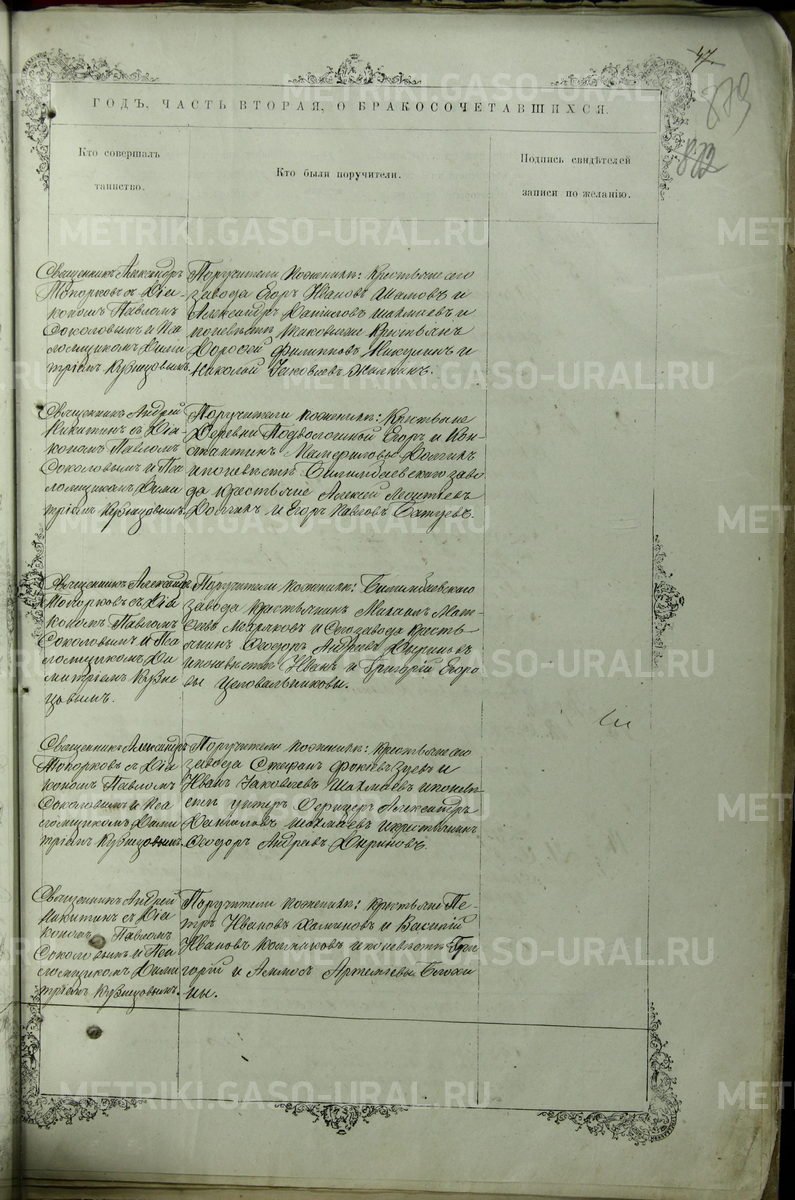 47
879
882
ГОДЪ, ЧАСТЬ ВТОРАЯ, О БРАКОСОЧЕТАВШИХСЯ.
Кто совершалъ
таинство.
Кто были поручители.
Подпись свидѣтелей
записи по желанію.
Священникъ Александръ
Топорковъ съ Діа-
кономъ Павломъ
Соколовымъ и Пса
ломщикомъ Дими
тріемъ Кузнецовымъ
Поручители по женихѣ: Крестьяне сего
завода Егоръ Ивановъ и
Александръ Даниловъ Шахмаевъ и
по невѣстѣ Крестьяне
Дорофей Филипповъ Никулинъ и
Николай Яковлевъ
Священникъ Андрей
Никитинъ съ Діа-
кономъ Павломъ
Соколовымъ и Пса
ломщикомъ Дими
тріемъ Кузнецовымъ
Поручители по женихѣ: Крестьяне
Деревни Подволошиной Егоръ и Кон-
стантинъ
и по невѣстѣ Билимбаевскаго заво
да крестьяне Алексѣй
и Егоръ Павловъ
Священникъ Александръ
Топорковъ съ Діа
кономъ Павломъ
Соколовымъ и Пса
ломщикомъ Ди
митріемъ Кузне
цовымъ.
Поручители по женихѣ: Билимбаевскаго
завода крестьянинъ Михаилъ Мат-
и сего завода кресть-
янинъ Ѳеодоръ Андреевъ
и по невѣстѣ Иванъ и Григорій Егоро
вы Цѣловальниковы.
Священникъ Александръ
Топорковъ съ Діа
кономъ Павломъ
Соколовымъ и Пса
ломщикомъ Дими
тріемъ Кузнецовымъ
Поручители по женихѣ: крестьяне сего
завода Стефанъ Фокіевъ Зуевъ и
Иванъ Яковлевъ Шахмаевъ и по невѣ
стѣ унтеръ Офицеръ Александръ
Даниловъ Шахмаевъ и крестьянинъ
Ѳеодоръ Андреевъ
Священникъ Андрей
Никитинъ съ Діа
кономъ Павломъ
Соколовымъ и Пса
ломщикомъ Дими
тріемъ Кузнецовымъ.
Поручители по женихѣ: крестьяне Пе-
тръ Ивановъ и Василій
Ивановъ и по невѣстѣ Гри
горій и Аммосъ Артемьевы
ны.
METRIKI.GASO-URAL.RU